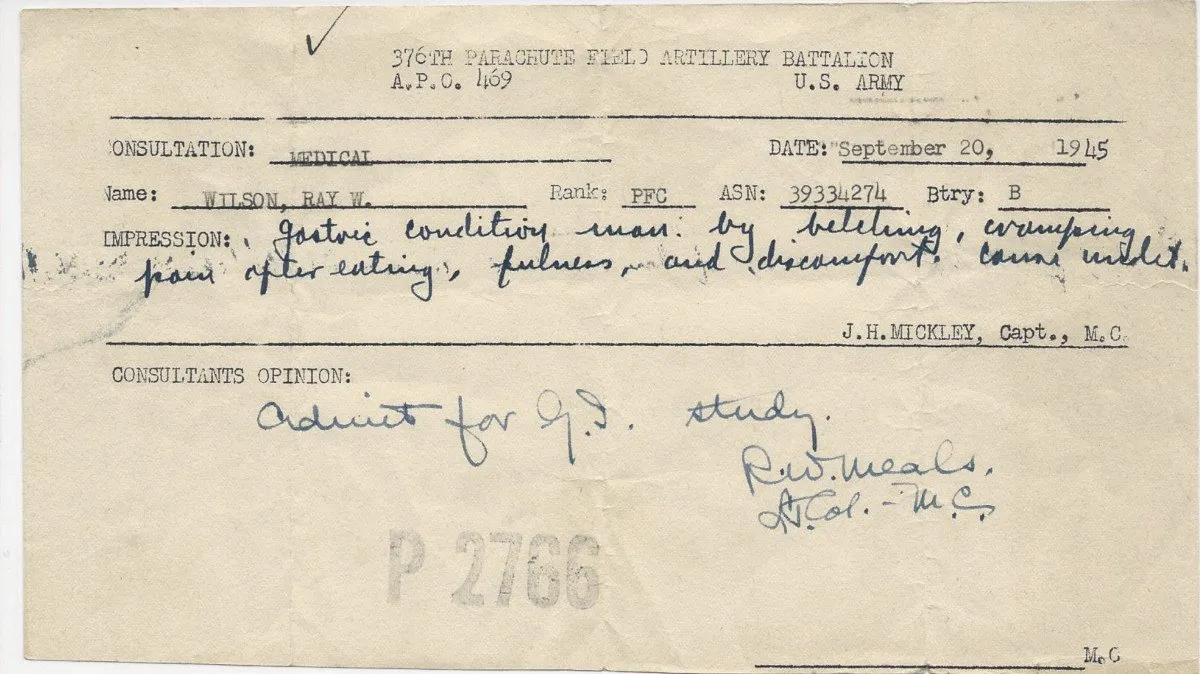 376TH PARACHUTE FIELD ARTILLERY BATTALION
A.P.O. 469 U.S. ARMY
ONSULTATION: MEDICAL DATE: September 20, 1945
Name: WILSON, RAY W. Rank: PFC ASN: 39334274 Btry: B
IMPRESSION: Gastric condition man. by belching, cramping
pain after eating, fulness, and discomfort. Cause undet.
J.H.MICKLEY, Capt., M.C.
CONSULTANTS OPINION:
Admit for G.I. study.
R.W. Meals.
Lt. Col. - M.C.
P 2766
M.C